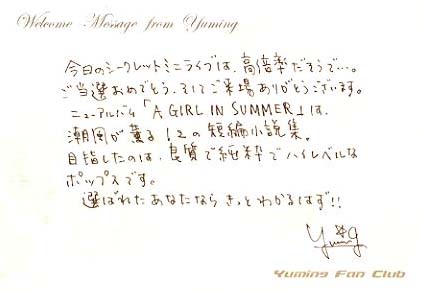 Welcome Message from Yuming
今日のシークレットミニライブは、高倍率だそうで…。
ご当選おめでとう、そしてご来場ありがとうございます。
ニューアルバム「A GIRL IN SUMMER」は、
潮風が薫る12の短編小説集。
目指したのは、良質で純粋でハイレベルな
ポップスです。
選ばれたあなたなら きっとわかるはず!!
Yuming
Yuming Fan Club